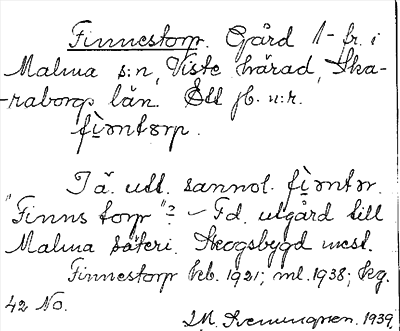 Finnestorp. Gård 1- fr. i
Malma s:n, Viste härad, Ska-
-raborgs län. Ett jb. n:r.
fìnntorp.
I ä. utt. sannol. fìnntor.
"Finns torp"? – F.d. utgård till
Malma säteri. Skogsbygd mest.
Finnestorp kb. 1921; ml. 1938; kg.
42 No.
1939.